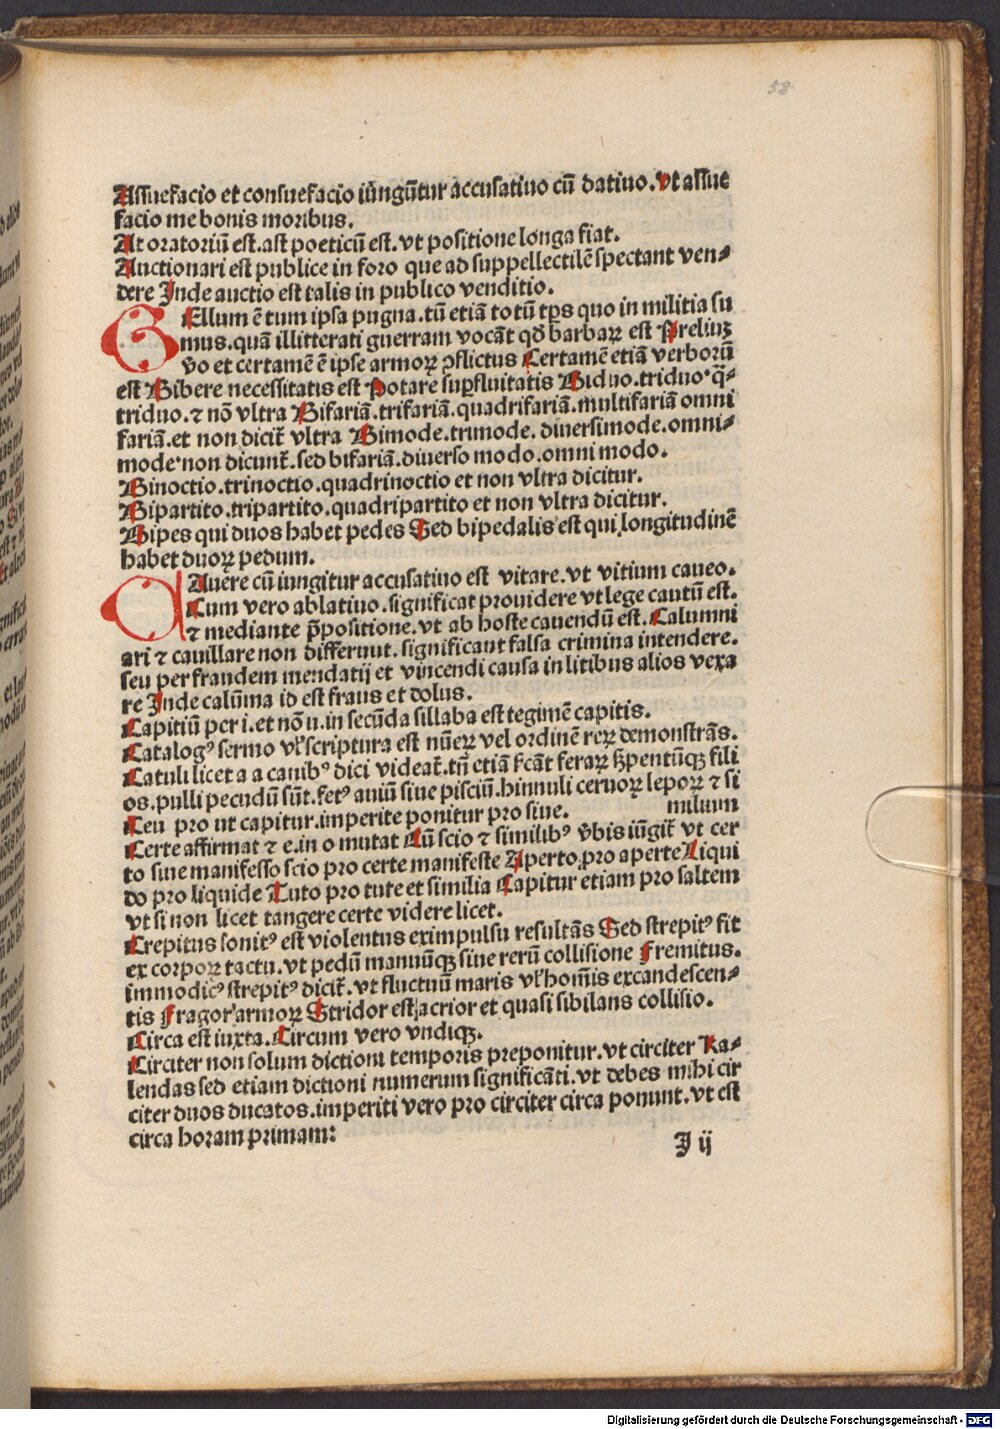 58
Assuefacio et consuefacio iũngũtur accusatiuo cũ datiuo. vt assue
facio me bonis moribus.
At oratoriũ est. ast poeticũ est. vt positione longa fiat.
Auctionari est publice in foro que ad suppellectilẽ spectant ven⸗
dere Inde auctio est talis in publico venditio.
BEllum ẽ tum ipsa pugna. tũ etiã totũ tp̃s quo in militia su
mus. quã illitterati guerram vocãt qď barbaꝝ est Preliuꝫ
v̉o et certamẽ ẽ ipse armoꝝ ↄflictus Certamẽ etiã verborũ
est Bibere necessitatis est Potare suꝑfluitatis Biduo. triduo. q̃⸗
triduo. ⁊ nõ vltra Bifariã. trifariã. quadrifariã. multifariã omni
fariã. et non diciť vltra Bimode. trimode. diuersimode. omni⸗
mode. non dicunť. sed bifariã. diuerso modo. omni modo.
Binoctio. trinoctio. quadrinoctio et non vltra dicitur.
Bipartito. tripartito. quadripartito et non vltra dicitur.
Bipes qui duos habet pedes Sed bipedalis est qui longitudinẽ
habet duoꝝ pedum.
CAuere cũ iungitur accusatiuo est vitare. vt vitium caueo.
Cum vero ablatiuo. significat prouidere vt lege cautũ est.
⁊ mediante p̃positione. vt ab hoste cauendũ est. Calumni
ari ⁊ cauillare non differnut. significant falsa crimina intendere.
seu per fraudem mendatij et vincendi causa in litibus alios vexa
re Inde calũnia id est fraus et dolus.
Capitiũ per i. et nõ u. in secũda sillaba est tegimẽ capitis.
Catalogꝰ sermo vƚ scriptura est nũeꝝ vel ordinẽ reꝝ demonstrãs.
Catuli licet a a canibꝰ dici videať. tñ etiã ďcãt feraꝝ ẜpentũqꝫ fili
os. pulli pecudũ sũt. fetꝰ auiũ siue pisciũ. hinnuli ceruoꝝ lepoꝝ ⁊ si
Ceu pro ut capitur. imperite ponitur pro siue. milium
Certe affirmat ⁊ e. in o mutat Cũ scio ⁊ similibꝰ v̉bis iũgiť vt cer
to siue manifesto scio pro certe manifeste Aperto. pro aperte Liqui
do pro liquide Tuto pro tute et similia Capitur etiam pro saltem
vt si non licet tangere certe videre licet.
Crepitus sonitꝰ est violentus ex impulsu resultãs Sed strepitꝰ fit
ex corpoꝝ tactu. vt pedũ manuũqꝫ siue rerũ collisione Fremitus.
immodicꝰ strepitꝰ diciť. vt fluctuũ maris vƚ hoĩmis excandescen⸗
tis Fragor armoꝝ Stridor est acrior et quasi sibilans collisio.
Circa est iuxta. Circum vero vndiqꝫ.
Circiter non solum dictioni temporis preponitur. vt circiter Ka⸗
lendas sed etiam dictioni numerum significãti. vt debes mihi cir
citer duos ducatos. imperiti vero pro circiter circa ponunt. vt est
circa horam primam:
I ij
Digitalisierung gefördert durch die Deutsche Forschungsgemeinschaft - DFG